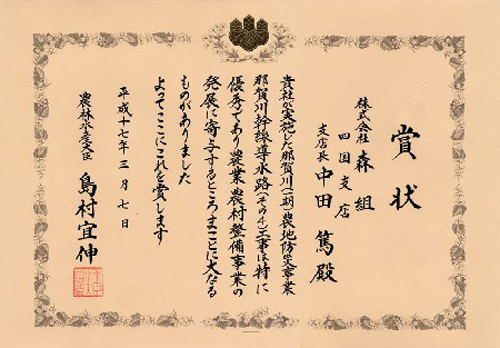 賞状
株式会社 森組
四国支店
支店長 中田 篤 殿
貴社が実施した那賀川(一期)農地防災事業
那賀川幹線導水路(その七)工事は特に
優秀であり農業農村整備事業の
発展に寄与するところまことに大なる
ものがありました
よってここにこれを賞します
平成十七年三月七日
農林水産大臣 島村宜伸